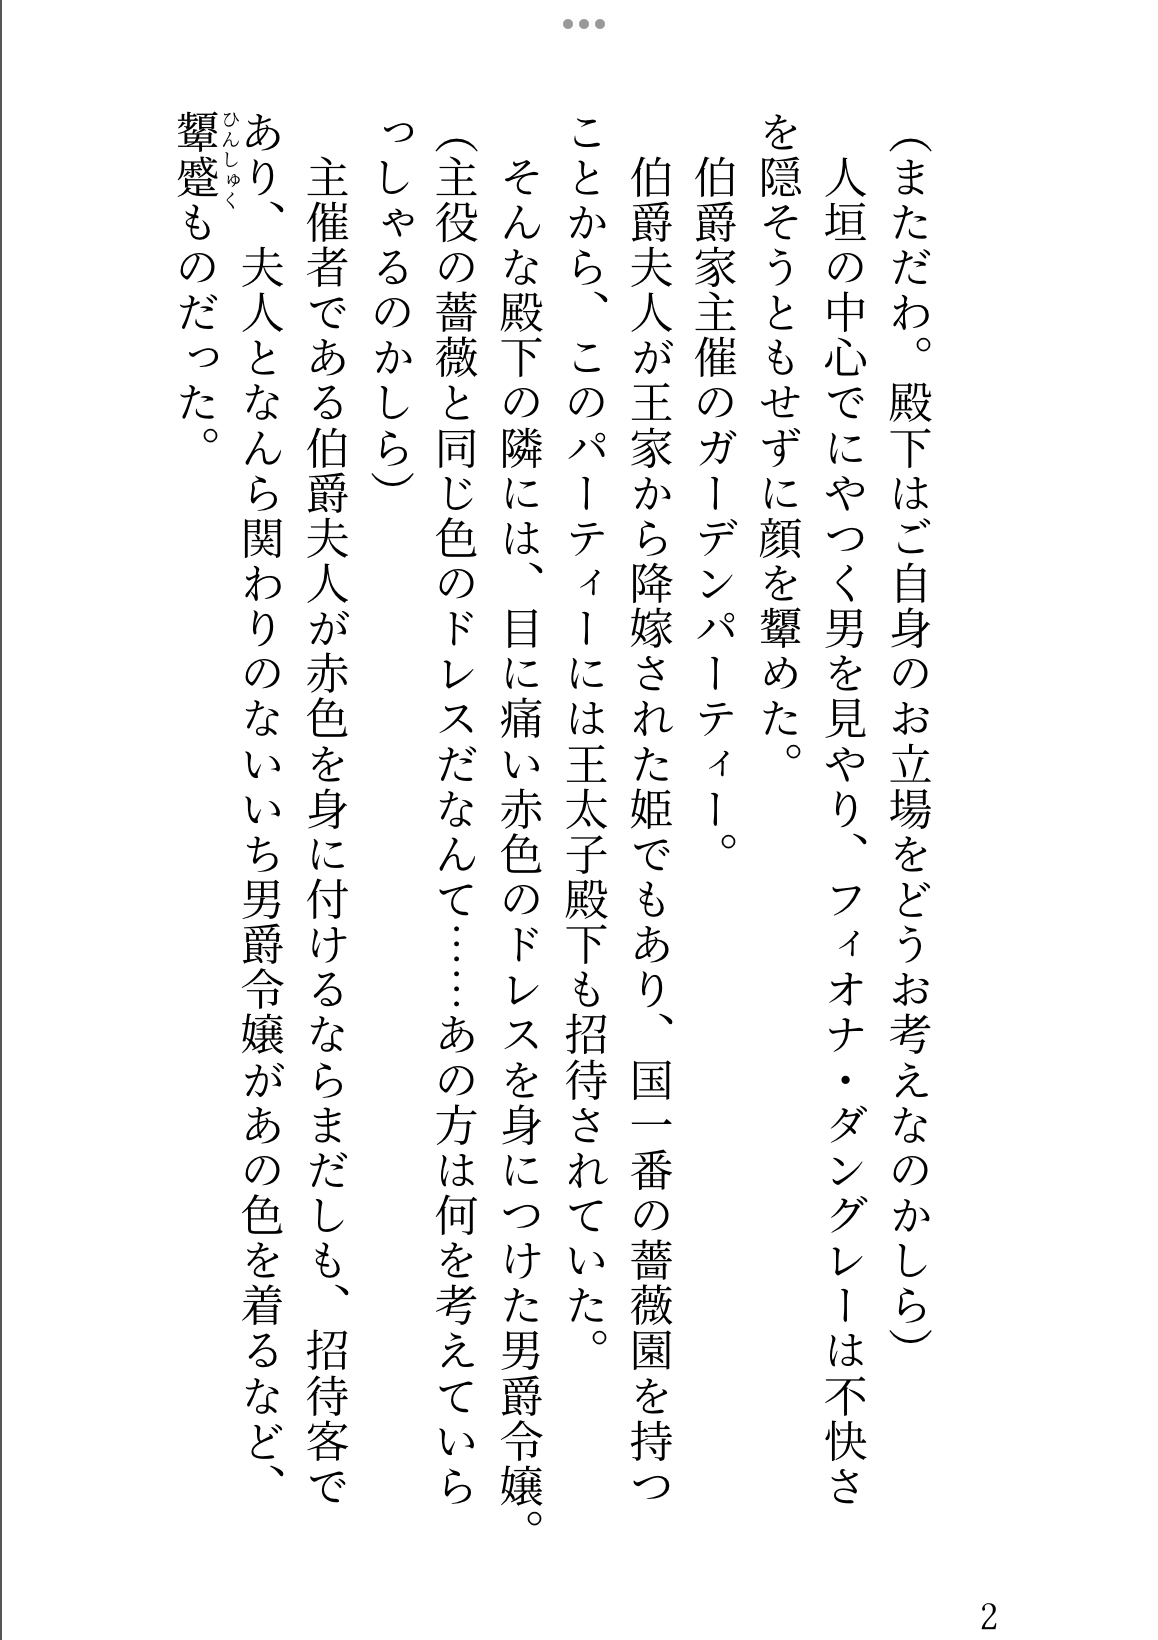 （まただわ。殿下はご自身のお立場をどうお考えなのかしら）
人垣の中心でにやつく男を見やり、フィオナ・ダングレーは不快さ
を隠そうともせずに顔を顰めた。
伯爵家主催のガーデンパーティー。
伯爵夫人が王家から降嫁された姫でもあり、国一番の薔薇園を持つ
ことから、このパーティーには王太子殿下も招待されていた。
そんな殿下の隣には、目に痛い赤色のドレスを身につけた男爵令嬢。
（主役の薔薇と同じ色のドレスだなんて……あの方は何を考えていら
っしゃるのかしら）
主催者である伯爵夫人が赤色を身に付けるならまだしも、招待客で
あり、夫人となんら関わりのないいち男爵令嬢があの色を着るなど、
ひんしゅく
顰蹙ものだった。
2